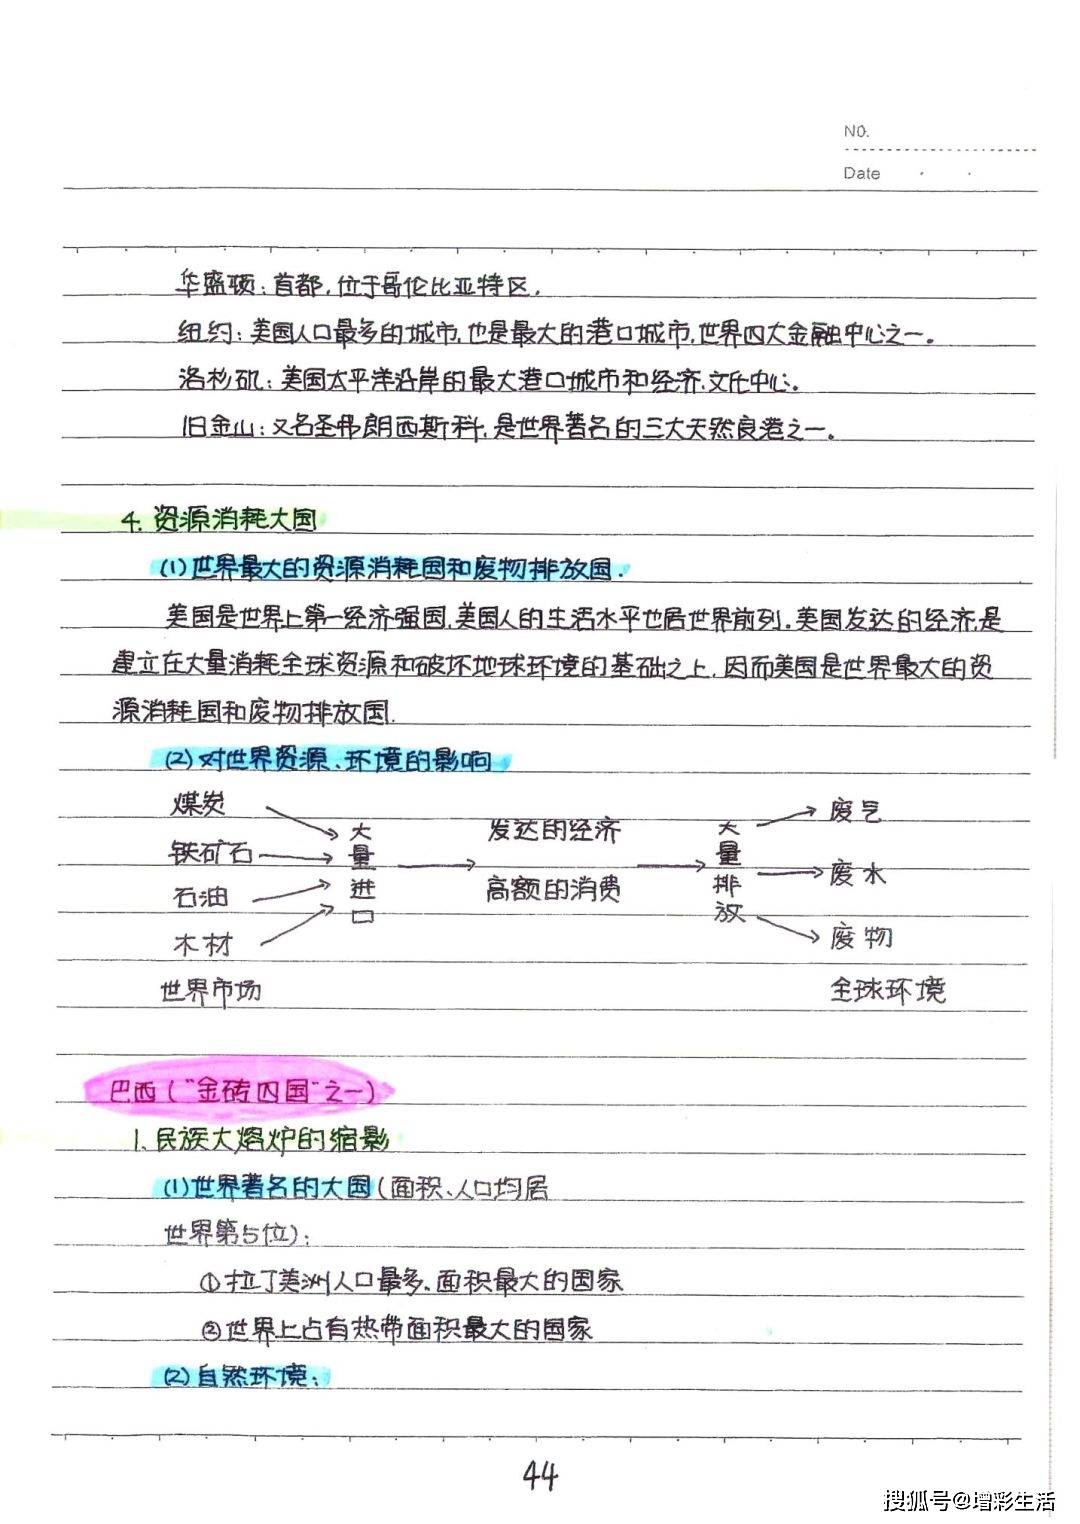 NO.
Date
华盛顿：首都，位于哥伦比亚特区．
纽约：美国人口最多的城市，也是最大的港口城市，世界四大金融中心之一。
洛杉矶：美国太平洋沿岸的最大港口城市和经济、文化中心。
旧金山：又名圣弗朗西斯科，是世界著名的三大天然良港之一。
4. 资源消耗大国
(1)世界最大的资源消耗国和废物排放国．
美国是世界上第一经济强国，美国人的生活水平也居世界前列。美国发达的经济，是
建立在大量消耗全球资源和破坏地球环境的基础之上，因而美国是世界最大的资
源消耗国和废物排放国．
(2)对世界资源、环境的影响
煤炭
铁矿石
石油
木材
世界市场
大量进口
发达的经济
高额的消费
大量排放
废气
废水
废物
全球环境
巴西（“金砖四国”之一）
1. 民族大熔炉的缩影
(1)世界著名的大国（面积、人口均居
世界第5位）：
①拉丁美洲人口最多、面积最大的国家
②世界上占有热带面积最大的国家
(2)自然环境：
44
搜狐号@增彩生活